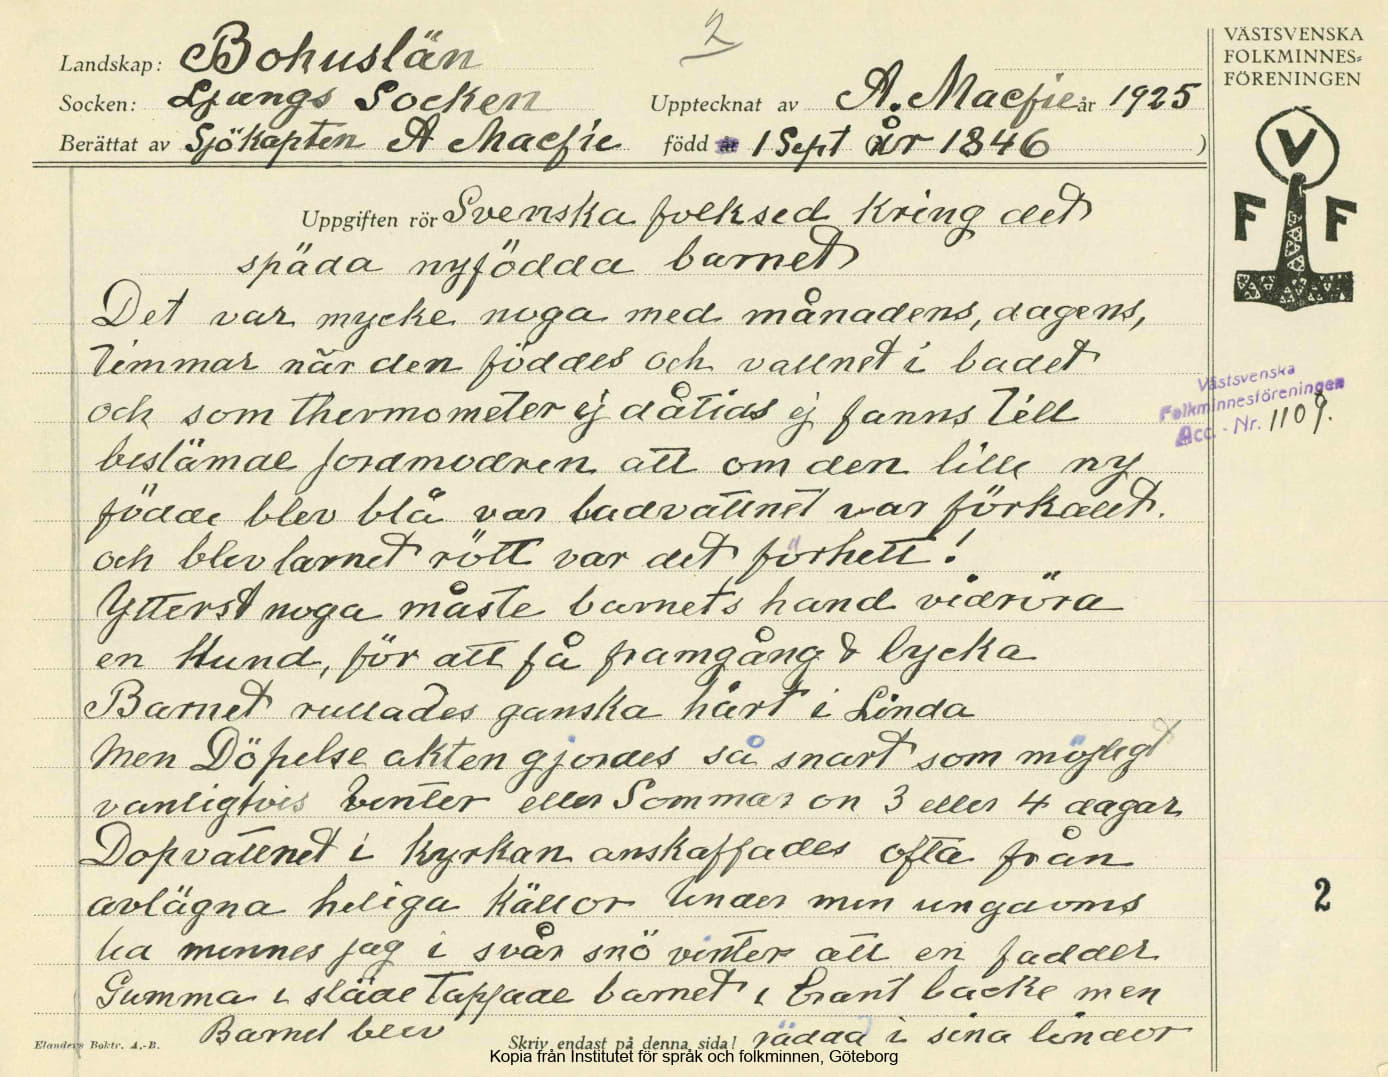 2
VÄSTSVENSKA
FOLKMINNES=
FÖRENINGEN
Landskap: Bohuslän
Socken: Ljungs Socken Upptecknat av A. Macfie år 1925
Berättat av Sjökapten A Macfie född år 1 Sept år 1846 )
V
F F
Uppgiften rör Svenska folksed kring det
späda nyfödda barnet
Det var mycke noga med månadens, dagens,
timmar när den föddes och vattnet i badet
och som thermometer ej dåtids ej fanns till
bestämde jordmodren att om den lille ny
födde blev blå var badvattnet var förkallt.
och blev barnet rött var det förhett!
Ytterst noga måste barnets hand vidröra
en Hund, för att få framgång & lycka
Barnet rullades ganska hårt i Linda
Men Döpelse akten gjordes så snart som möjligt
vanligtvis Venter eller Sommar on 3 eller 4 dagar
Dopvattnet i kyrkan anskaffades ofta från
avlägna heliga Källor Under min ungdoms
tid minnes jag i svår snö vinter att en fadder
Gumma i släde tappade barnet i brant backe men
Barnet blev räddad i sina lindor
Västsvenska
Folkminnesföreningen
Acc. - Nr. 1109.
2
Elanders Boktr. A.-B.
Skriv endast på denna sida!
Kopia från Institutet för språk och folkminnen, Göteborg